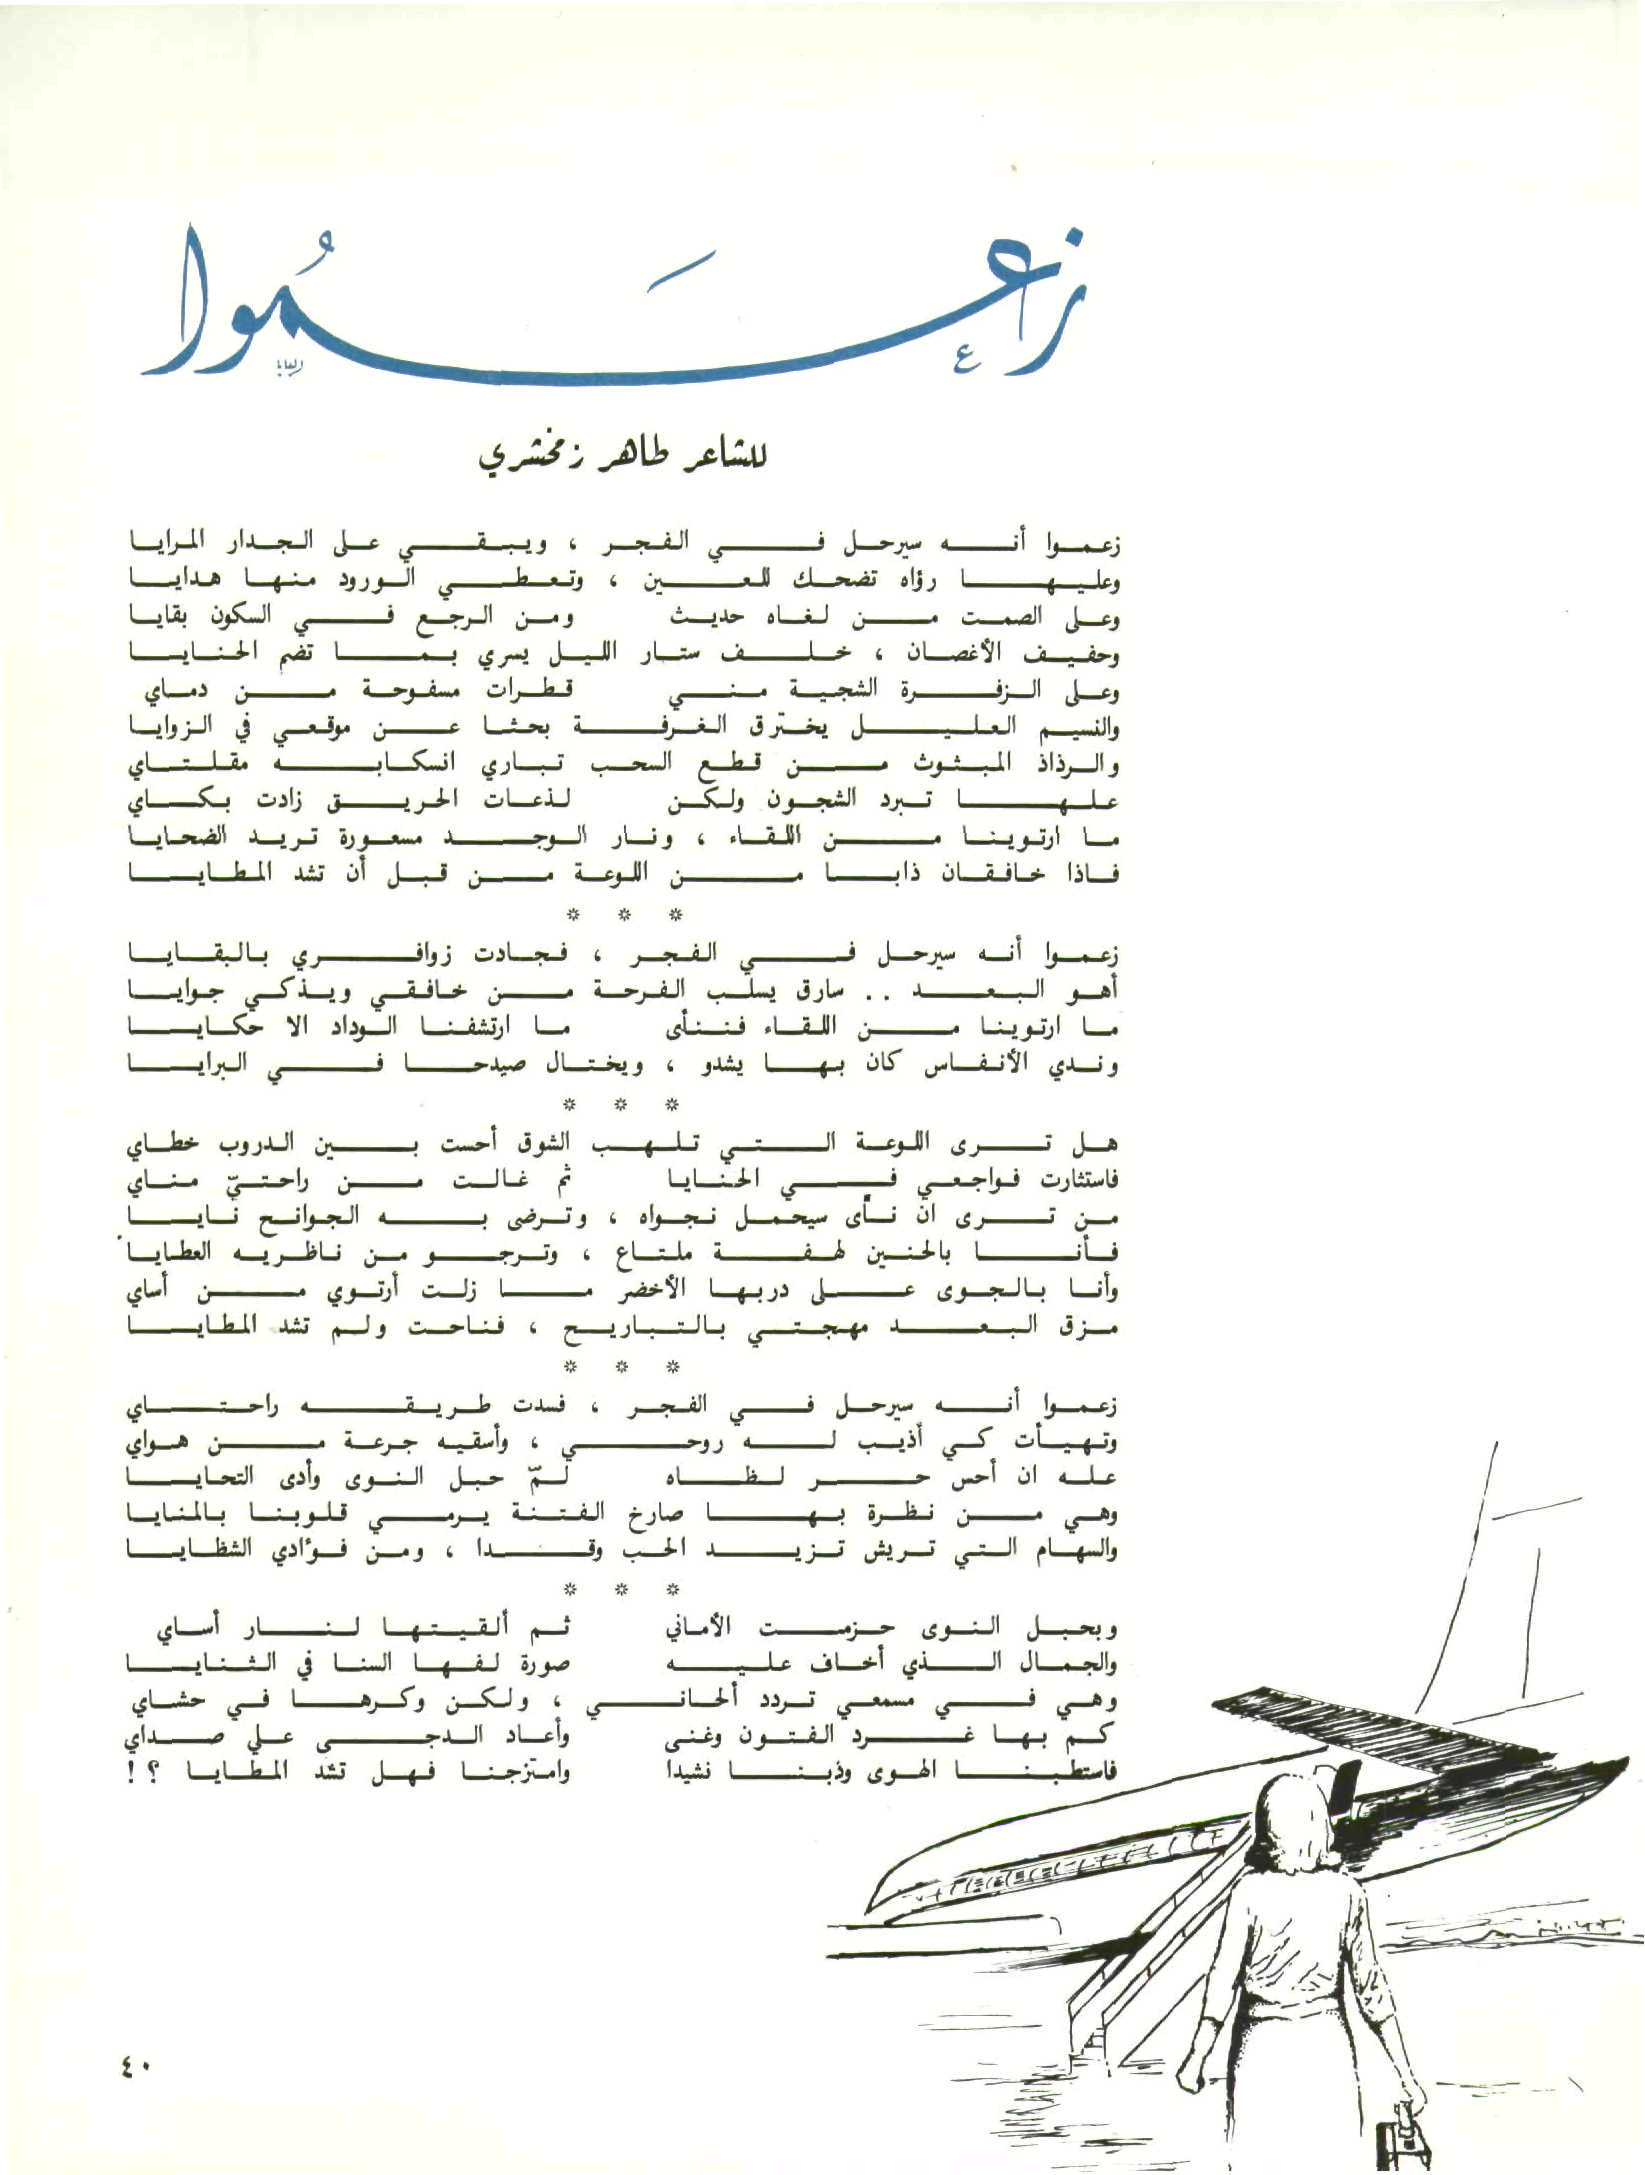 زعموا
للشاعر طاهر زمخشري
زعموا أنه سيرحل في الفجر ، ويبقي على الجدار المرايا
وعليها رؤاه تضحك للعين ، وتعطي الورود منها هدايا
وعلى الصمت من لغاه حديث ومن الرجع في السكون بقايا
وحفيف الأغصان ، خلف ستار الليل يسري بما تضم الحنايا
وعلى الزفرة الشجية مني قطرات مسفوحة من دماي
والنسيم العليل يخترق الغرفة بحثا عن موقعي في الزوايا
والرذاذ المبثوث من قطع السحب تباري انسكابه مقلتاي
علها تبرد الشجون ولكن لذعات الحريق زادت بكاي
ما ارتوينا من اللقاء ، ونار الوجد مسعورة تريد الضحايا
فاذا خافقان ذابا من اللوعة من قبل أن تشد المطايا
* * *
زعموا أنه سيرحل في الفجر ، فجادت زوافري بالبقايا
أهو البعد .. سارق يسلب الفرحة من خافقي ويذكي جوايا
ما ارتوينا من اللقاء فننأى ما ارتشفنا الوداد الا حكايا
وندي الأنفاس كان بها يشدو ، ويختال صيدحا في البرايا
* * *
هل ترى اللوعة التي تلهب الشوق أحست بين الدروب خطاي
فاستثارت فواجعي في الحنايا ثم غالت من راحتيّ مناي
من ترى ان نأى سيحمل نجواه ، وترضى به الجوانح نايا
فأنا بالحنين لهفة ملتاع ، وترجو من ناظريه العطايا
وأنا بالجوى على دربها الأخضر ما زلت أرتوي من أساي
مزق البعد مهجتي بالتباريح ، فناحت ولم تشد المطايا
* * *
زعموا أنه سيرحل في الفجر ، فسدت طريقه راحتاي
وتهيأت كي أذيب له روحي ، وأسقيه جرعة من هواي
عله ان أحس حر لظاه لمّ حبل النوى وأدى التحايا
وهي من نظرة بها صارخ الفتنة يرمي قلوبنا بالمنايا
والسهام التي تريش تزيد الحب وقدا ، ومن فؤادي الشظايا
* * *
وبحبل النوى حزمت الأماني ثم ألقيتها لنار أساي
والجمال الذي أخاف عليه صورة لفها السنا في الثنايا
وهي في مسمعي تردد ألحاني ، ولكن وكرها في حشاي
كم بها غرد الفتون وغنى وأعاد الدجى علي صداي
فاستطبنا الهوى وذبنا نشيدا وامتزجنا فهل تشد المطايا ؟!
٤٠